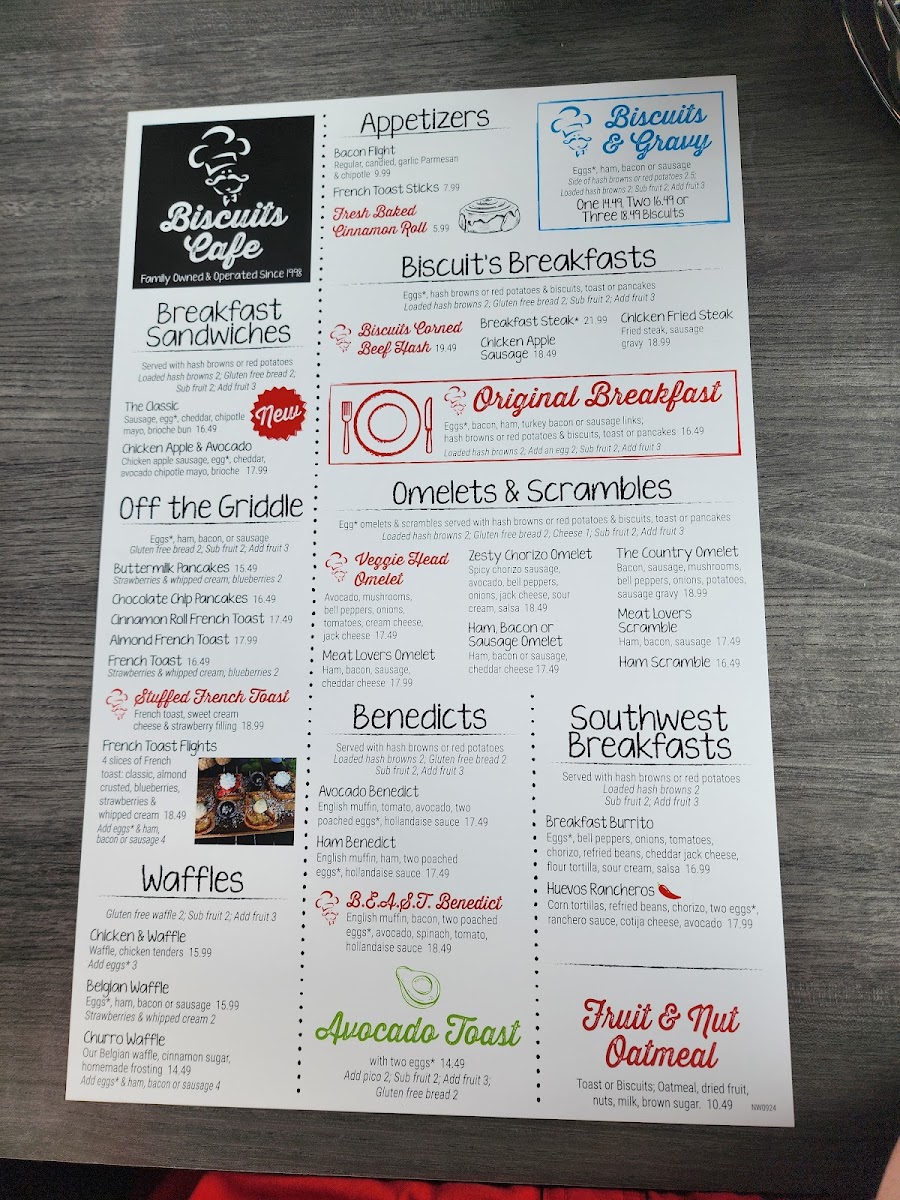 Biscuits
Cafe
Family Owned & Operated Since 1998
Breakfast
Sandwiches
Served with hash browns or red potatoes
Loaded hash browns 2; Gluten free bread 2;
Sub fruit 2; Add fruit 3
The Classic
Sausage, egg*, cheddar, chipotle
mayo, brioche bun 16.49
New
Chicken Apple & Avocado
Chicken apple sausage, egg*, cheddar,
avocado chipotle mayo, brioche 17.99
Off the Griddle
Eggs*, ham, bacon, or sausage
Gluten free bread 2; Sub fruit 2; Add fruit 3
Buttermilk Pancakes 15.49
Strawberries & whipped cream, blueberries 2
Chocolate Chip Pancakes 16.49
Cinnamon Roll French Toast 17.49
Almond French Toast 17.99
French Toast 16.49
Strawberries & whipped cream, blueberries 2
Stuffed French Toast
French toast, sweet cream
cheese & strawberry filling 18.99
French Toast Flights
4 slices of French
toast: classic, almond
crusted, blueberries,
strawberries &
whipped cream 18.49
Add eggs* & ham,
bacon or sausage 4
Waffles
Gluten free waffle 2; Sub fruit 2; Add fruit 3
Chicken & Waffle
Waffle, chicken tenders 15.99
Add eggs* 3
Belgian Waffle
Eggs*, ham, bacon or sausage 15.99
Strawberries & whipped cream 2
Churro Waffle
Our Belgian waffle, cinnamon sugar,
homemade frosting 14.49
Add eggs* & ham, bacon or sausage 4
Appetizers
Bacon Flight
Regular, candied, garlic Parmesan
& chipotle 9.99
French Toast Sticks 7.99
Fresh Baked
Cinnamon Roll 5.99
Biscuits
& Gravy
Eggs*, ham, bacon or sausage
Side of hash browns or red potatoes 2.5;
Loaded hash browns 2; Sub fruit 2; Add fruit 3
One 14.49, Two 16.49 or
Three 18.49 Biscuits
Biscuit's Breakfasts
Eggs*, hash browns or red potatoes & biscuits, toast or pancakes
Loaded hash browns 2; Gluten free bread 2; Sub fruit 2; Add fruit 3
Biscuits Corned
Beef Hash 19.49
Breakfast Steak* 21.99
Chicken Apple
Sausage 18.49
Chicken Fried Steak
Fried steak, sausage
gravy 18.99
Original Breakfast
Eggs*, bacon, ham, turkey bacon or sausage links;
hash browns or red potatoes & biscuits, toast or pancakes 16.49
Loaded hash browns 2; Add an egg 2; Sub fruit 2; Add fruit 3
Omelets & Scrambles
Egg* omelets & scrambles served with hash browns or red potatoes & biscuits, toast or pancakes
Loaded hash browns 2; Gluten free bread 2, Cheese 1; Sub fruit 2; Add fruit 3
Veggie Head
Omelet
Avocado, mushrooms,
bell peppers, onions,
tomatoes, cream cheese,
jack cheese 17.49
Meat Lovers Omelet
Ham, bacon, sausage,
cheddar cheese 17.99
Zesty Chorizo Omelet
Spicy chorizo sausage,
avocado, bell peppers,
onions, jack cheese, sour
cream, salsa 18.49
Ham, Bacon or
Sausage Omelet
Ham, bacon or sausage,
cheddar cheese 17.49
The Country Omelet
Bacon, sausage, mushrooms,
bell peppers, onions, potatoes,
sausage gravy 18.99
Meat Lovers
Scramble
Ham, bacon, sausage 17.49
Ham Scramble 16.49
Benedicts
Served with hash browns or red potatoes
Loaded hash browns 2; Gluten free bread 2
Sub fruit 2, Add fruit 3
Avocado Benedict
English muffin, tomato, avocado, two
poached eggs*, hollandaise sauce 17.49
Ham Benedict
English muffin, ham, two poached
eggs*, hollandaise sauce 17.49
B.E.A.S.T. Benedict
English muffin, bacon, two poached
eggs*, avocado, spinach, tomato,
hollandaise sauce 18.49
Avocado Toast
with two eggs* 14.49
Add pico 2; Sub fruit 2; Add fruit 3;
Gluten free bread 2
Southwest
Breakfasts
Served with hash browns or red potatoes
Loaded hash browns 2
Sub fruit 2; Add fruit 3
Breakfast Burrito
Eggs*, bell peppers, onions, tomatoes,
chorizo, refried beans, cheddar jack cheese,
flour tortilla, sour cream, salsa 16.99
Huevos Rancheros
Corn tortillas, refried beans, chorizo, two eggs*,
ranchero sauce, cotija cheese, avocado 17.99
Fruit & Nut
Oatmeal
Toast or Biscuits; Oatmeal, dried fruit,
nuts, milk, brown sugar. 10.49
NW0924